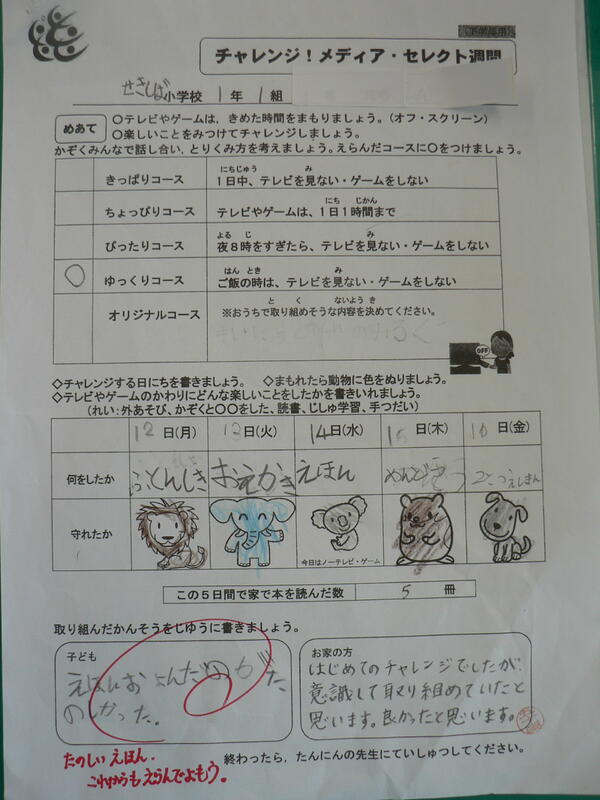 チャレンジ！メディア・セレクト週間
せきしば小学校 1年 1組
めあて
○テレビやゲームは，きめた時間をまもりましょう。（オフ・スクリーン）
○楽しいことをみつけてチャレンジしましょう。
かぞくみんなで話し合い，とりくみ方を考えましょう。えらんだコースに○をつけましょう。
きっぱりコース
にちじゅう み
1日中、テレビを見ない・ゲームをしない
ちょっぴりコース
にち じかん
テレビやゲームは、1日1時間まで
ぴったりコース
よる じ み
夜８時をすぎたら、テレビを見ない・ゲームをしない
○ ゆっくりコース
はん とき み
ご飯の時は、テレビを見ない・ゲームをしない
オリジナルコース
と く ないよう き
※おうちで取り組めそうな内容を決めてください。
OFF
◇チャレンジする日にちを書きましょう。 ◇まもれたら動物に色をぬりましょう。
◇テレビやゲームのかわりにどんな楽しいことをしたかを書きいれましょう。
（れい：外あそび、かぞくと〇〇をした、読書、じしゅ学習、手つだい）
12日(月) 13日(火) 14日(水) 15日(木) 16日(金)
何をしたか ふとんしき おえかき えほん
守れたか
今日はノーテレビ・ゲーム
この５日間で家で本を読んだ数 5 冊
取り組んだかんそうをじゆうに書きましょう。
子ども
えほんおよんだのがた
のしかった。
お家の方
はじめてのチャレンジでしたが、
意識して取り組めていたと
思います。良かったと思います。
たのしいえほん。
これからもえらんでよもう。
終わったら，たんにんの先生にていしゅつしてください。